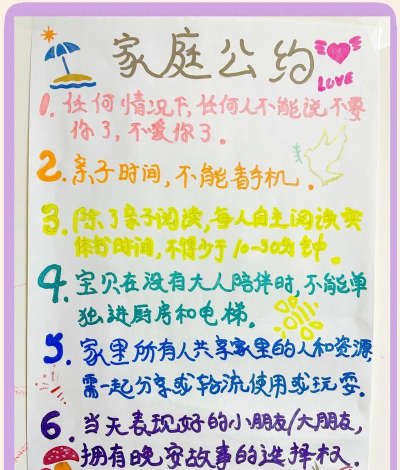 家庭公约
LOVE
1. 任何情况下,任何人不能说不要
你了,不爱你了。
2. 亲子时间,不能看手机。
3. 除了亲子阅读,每人自主阅读
时间,不得少于10-30分钟。
4. 宝贝在没有大人陪伴时,不能单
独进厨房和电梯。
5. 家里所有人共享家里的人和资源
需一起分享或轮流使用或玩耍.
6. 当天表现好的小朋友/大朋友,
拥有晚安故事的选择权.